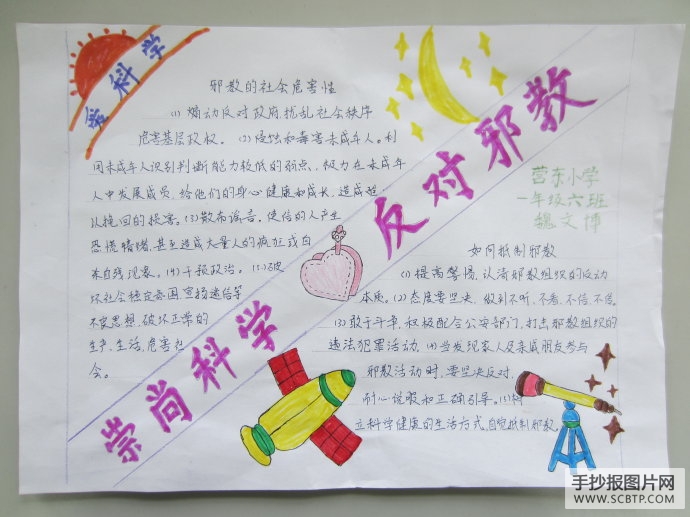 爱科学
邪教的社会危害性
(1) 煽动反对政府,扰乱社会秩序
危害基层政权。(2)侵蚀和毒害未成年人。利
用未成年人识别判断能力较低的弱点,极力在未成年
人中发展成员,给他们的身心健康和成长,造成难
以挽回的损害。(3)散布谣言。使信的人产生
恐慌情绪,甚至造成大量人的疯狂或自
杀自残现象。(4)干预政治。(5)破
坏社会稳定氛围,宣扬迷信等
不良思想,破坏正常的
生产、生活,危害社
会。
崇尚科学 反对邪教
营东小学
一年级六班
魏文博
如何抵制邪教
(1)提高警惕,认清邪教组织的反动
本质。(2)态度要坚决,做到不听、不看、不信、不传。
(3)敢于斗争,积极配合公安部门,打击邪教组织的
违法犯罪活动,(4)当发现家人及亲戚朋友参与
邪教活动时,要坚决反对,
耐心说服和正确引导。(5)树
立科学健康的生活方式,自觉抵制邪教。
手抄报图片网
WWW.SCBTP.COM